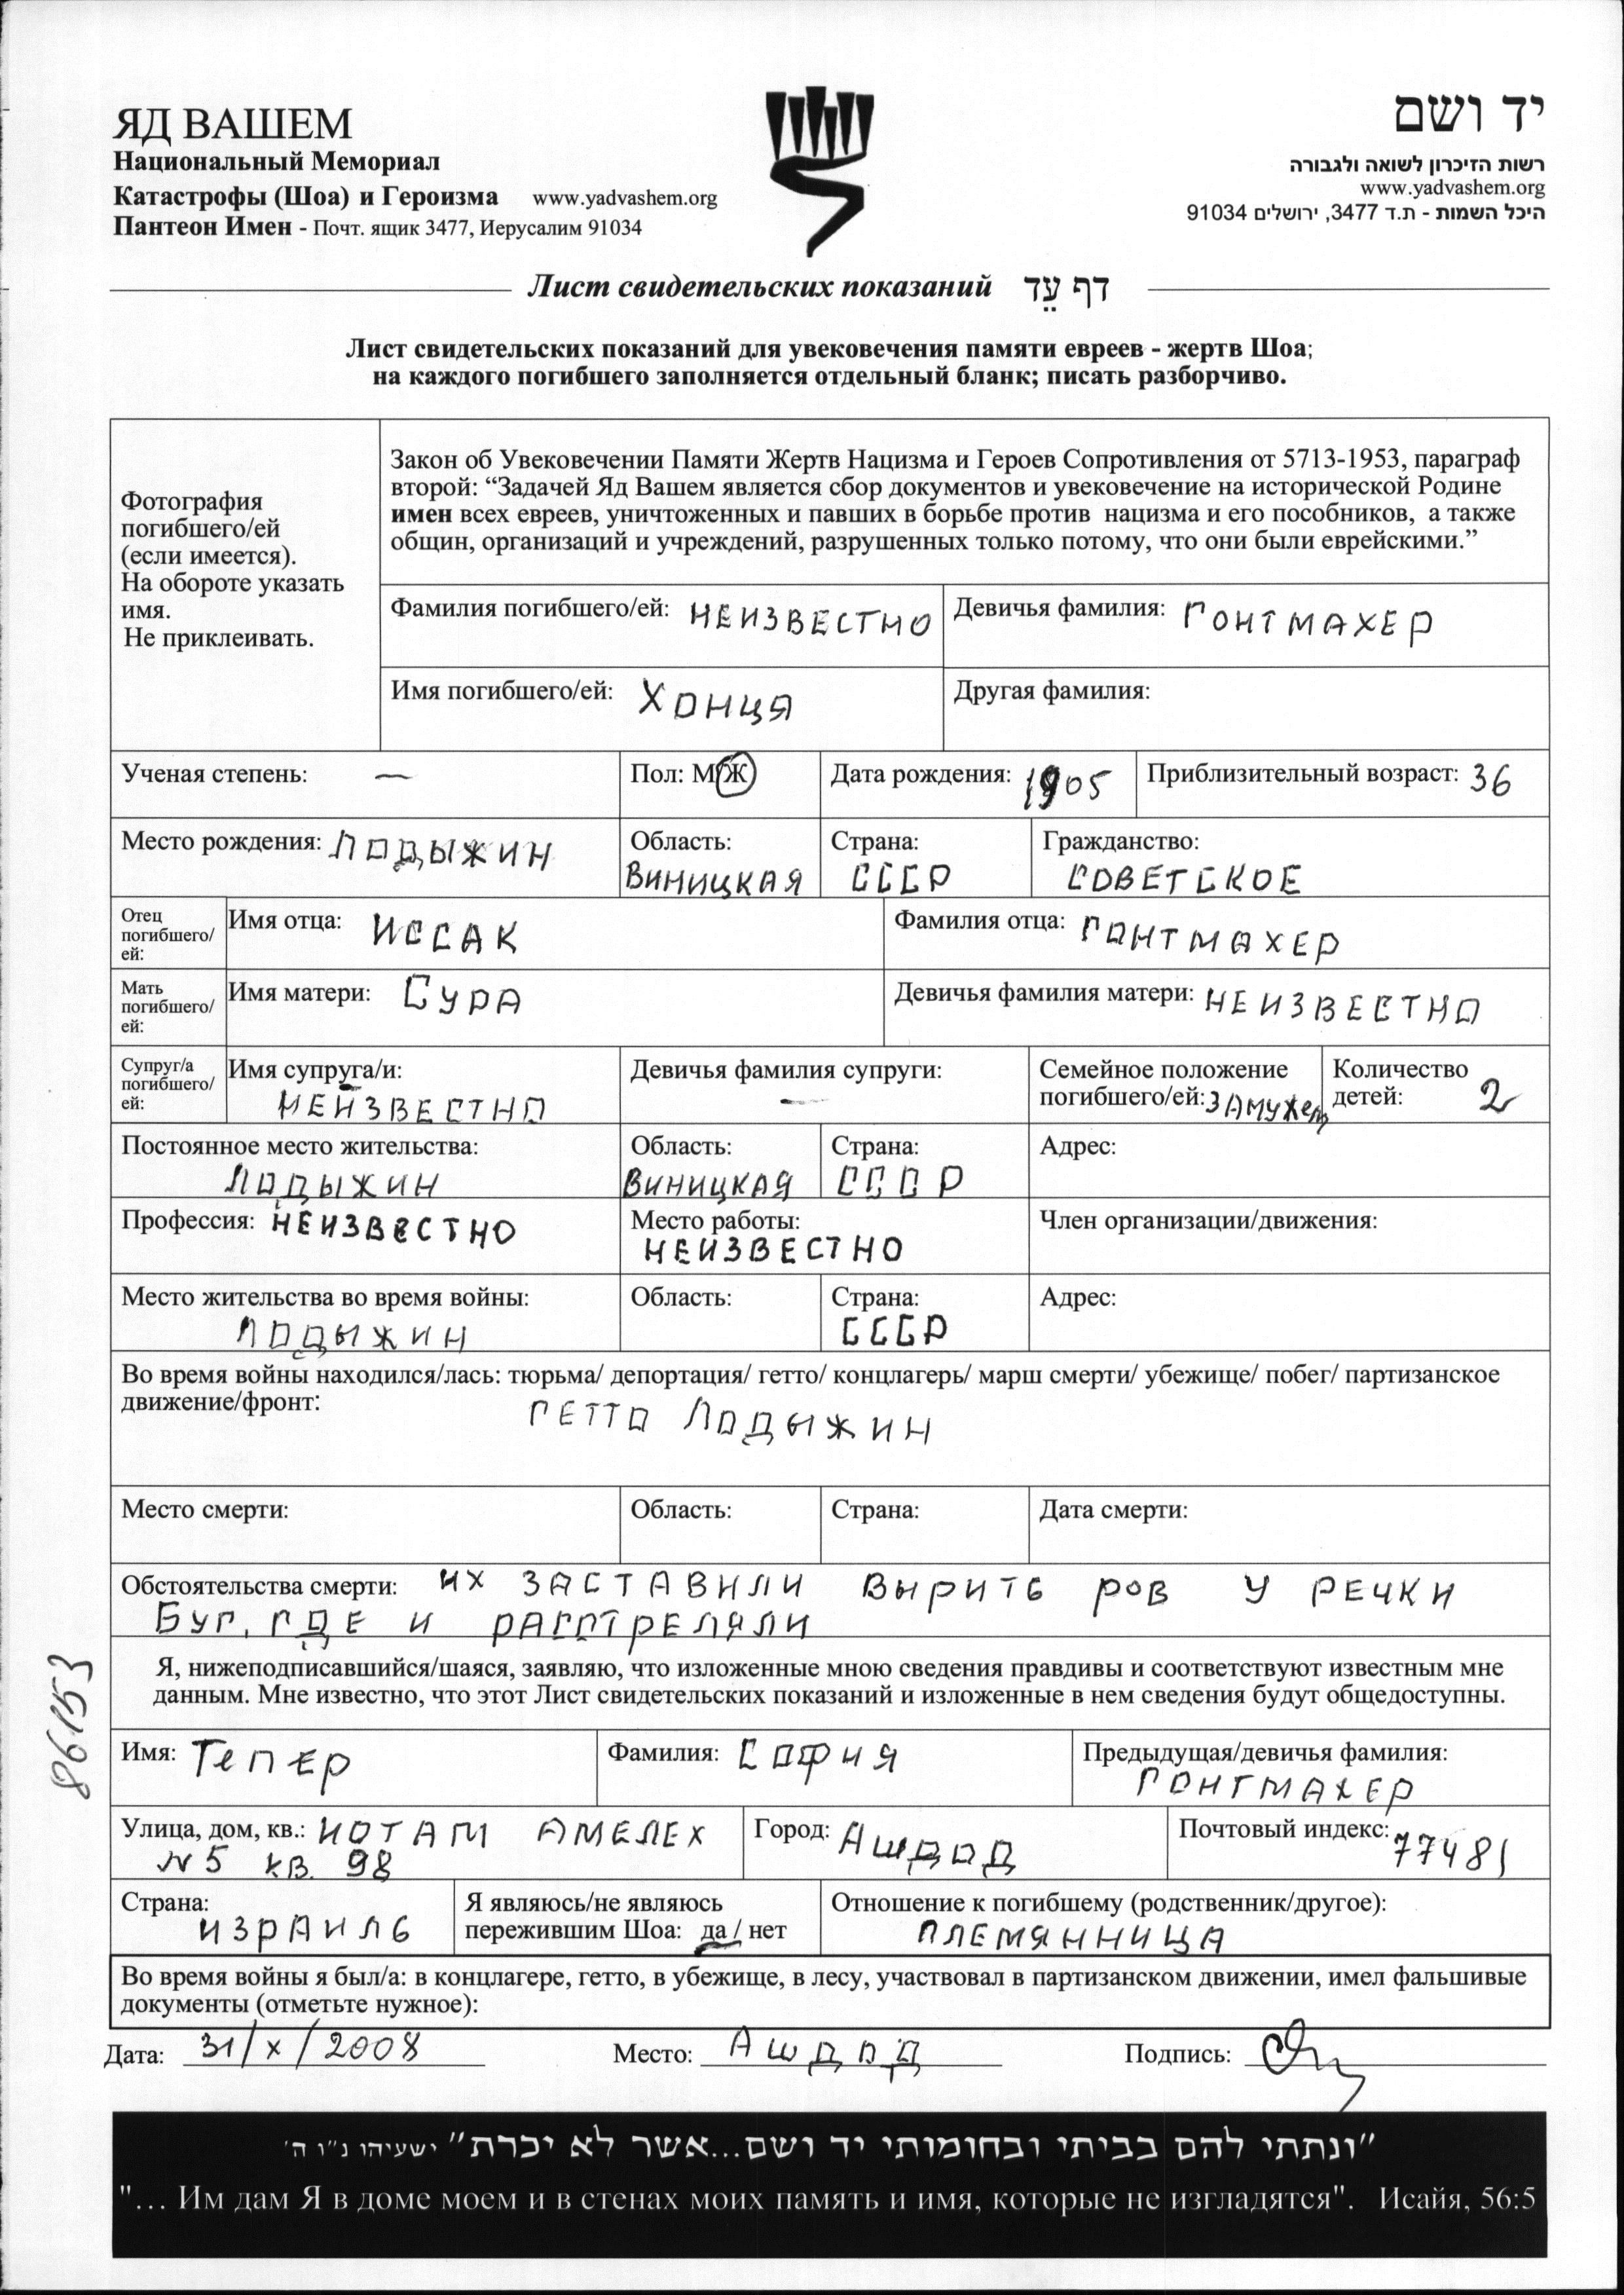 ЯД ВАШЕМ
Национальный Мемориал
Катастрофы (Шоа) и Героизма www.yadvashem.org
Пантеон Имен - Почт. ящик 3477, Иерусалим 91034
יד ושם
רשות הזיכרון לשואה ולגבורה
www.yadvashem.org
היכל השמות - ת.ד 3477, ירושלים 91034
Лист свидетельских показаний דף עֵד
Лист свидетельских показаний для увековечения памяти евреев - жертв Шоа;
на каждого погибшего заполняется отдельный бланк; писать разборчиво.
Фотография
погибшего/ей
(если имеется).
На обороте указать
имя.
Не приклеивать.
Закон об Увековечении Памяти Жертв Нацизма и Героев Сопротивления от 5713-1953, параграф
второй: “Задачей Яд Вашем является сбор документов и увековечение на исторической Родине
имен всех евреев, уничтоженных и павших в борьбе против нацизма и его пособников, а также
общин, организаций и учреждений, разрушенных только потому, что они были еврейскими.”
Фамилия погибшего/ей: НЕИЗВЕСТНО Девичья фамилия: ГОНТМАХЕР
Имя погибшего/ей: ХОНЦЯ Другая фамилия:
Ученая степень: — Пол: М/Ж Дата рождения: 1905 Приблизительный возраст: 36
Место рождения: ЛОДЫЖИН Область: ВИНИЦКАЯ Страна: СССР Гражданство: СОВЕТСКОЕ
Отец погибшего/ей: Имя отца: ИССАК Фамилия отца: ГОНТМАХЕР
Мать погибшего/ей: Имя матери: СУРА Девичья фамилия матери: НЕИЗВЕСТНО
Супруг/а погибшего/ей: Имя супруга/и: НЕИЗВЕСТНО Девичья фамилия супруги: — Семейное положение погибшего/ей: ЗАМУЖЕМ Количество детей: 2
Постоянное место жительства: ЛОДЫЖИН Область: ВИНИЦКАЯ Страна: СССР Адрес:
Профессия: НЕИЗВЕСТНО Место работы: НЕИЗВЕСТНО Член организации/движения:
Место жительства во время войны: ЛОДЫЖИН Область: Страна: СССР Адрес:
Во время войны находился/лась: тюрьма/ депортация/ гетто/ концлагерь/ марш смерти/ убежище/ побег/ партизанское
движение/фронт: ГЕТТО ЛОДЫЖИН
Место смерти: Область: Страна: Дата смерти:
Обстоятельства смерти: ИХ ЗАСТАВИЛИ ВЫРИТЬ РОВ У РЕЧКИ
БУГ, ГДЕ И РАССТРЕЛЯЛИ
Я, нижеподписавшийся/шаяся, заявляю, что изложенные мною сведения правдивы и соответствуют известным мне
данным. Мне известно, что этот Лист свидетельских показаний и изложенные в нем сведения будут общедоступны.
86153
Имя: ТЕПЕР Фамилия: СОФИЯ Предыдущая/девичья фамилия: ГОНТМАХЕР
Улица, дом, кв.: ИОТАМ АМЕЛЕХ Город: АШДОД Почтовый индекс: 77481
N 5 КВ. 98
Страна: ИЗРАИЛЬ Я являюсь/не являюсь пережившим Шоа: да / нет Отношение к погибшему (родственник/другое): ПЛЕМЯННИЦА
Во время войны я был/а: в концлагере, гетто, в убежище, в лесу, участвовал в партизанском движении, имел фальшивые
документы (отметьте нужное):
Дата: 31/X/2008 Место: АШДОД Подпись:
"ונתתי להם בביתי ובחומותי יד ושם...אשר לא יכרת" ישעיהו נ"ו ה'
"... Им дам Я в доме моем и в стенах моих память и имя, которые не изгладятся". Исайя, 56:5